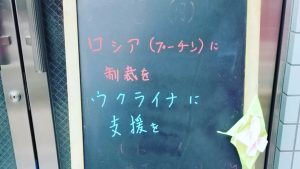 ロシア(プーチン)に
制裁を
ウクライナに
支援を